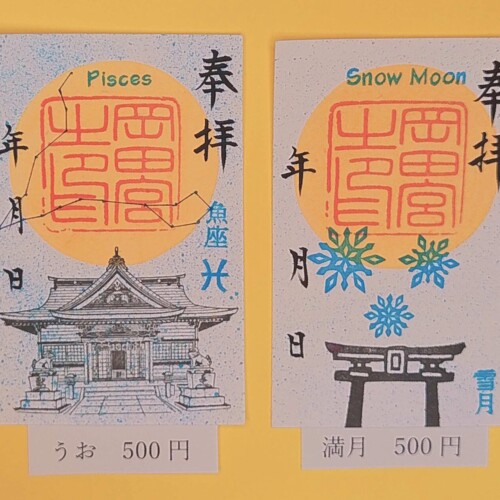 Pisces
奉拝
岡田宮之印
年月日
魚座
♓
うお 500円
Snow Moon
奉拝
岡田宮之印
年月日
雪月
満月 500円